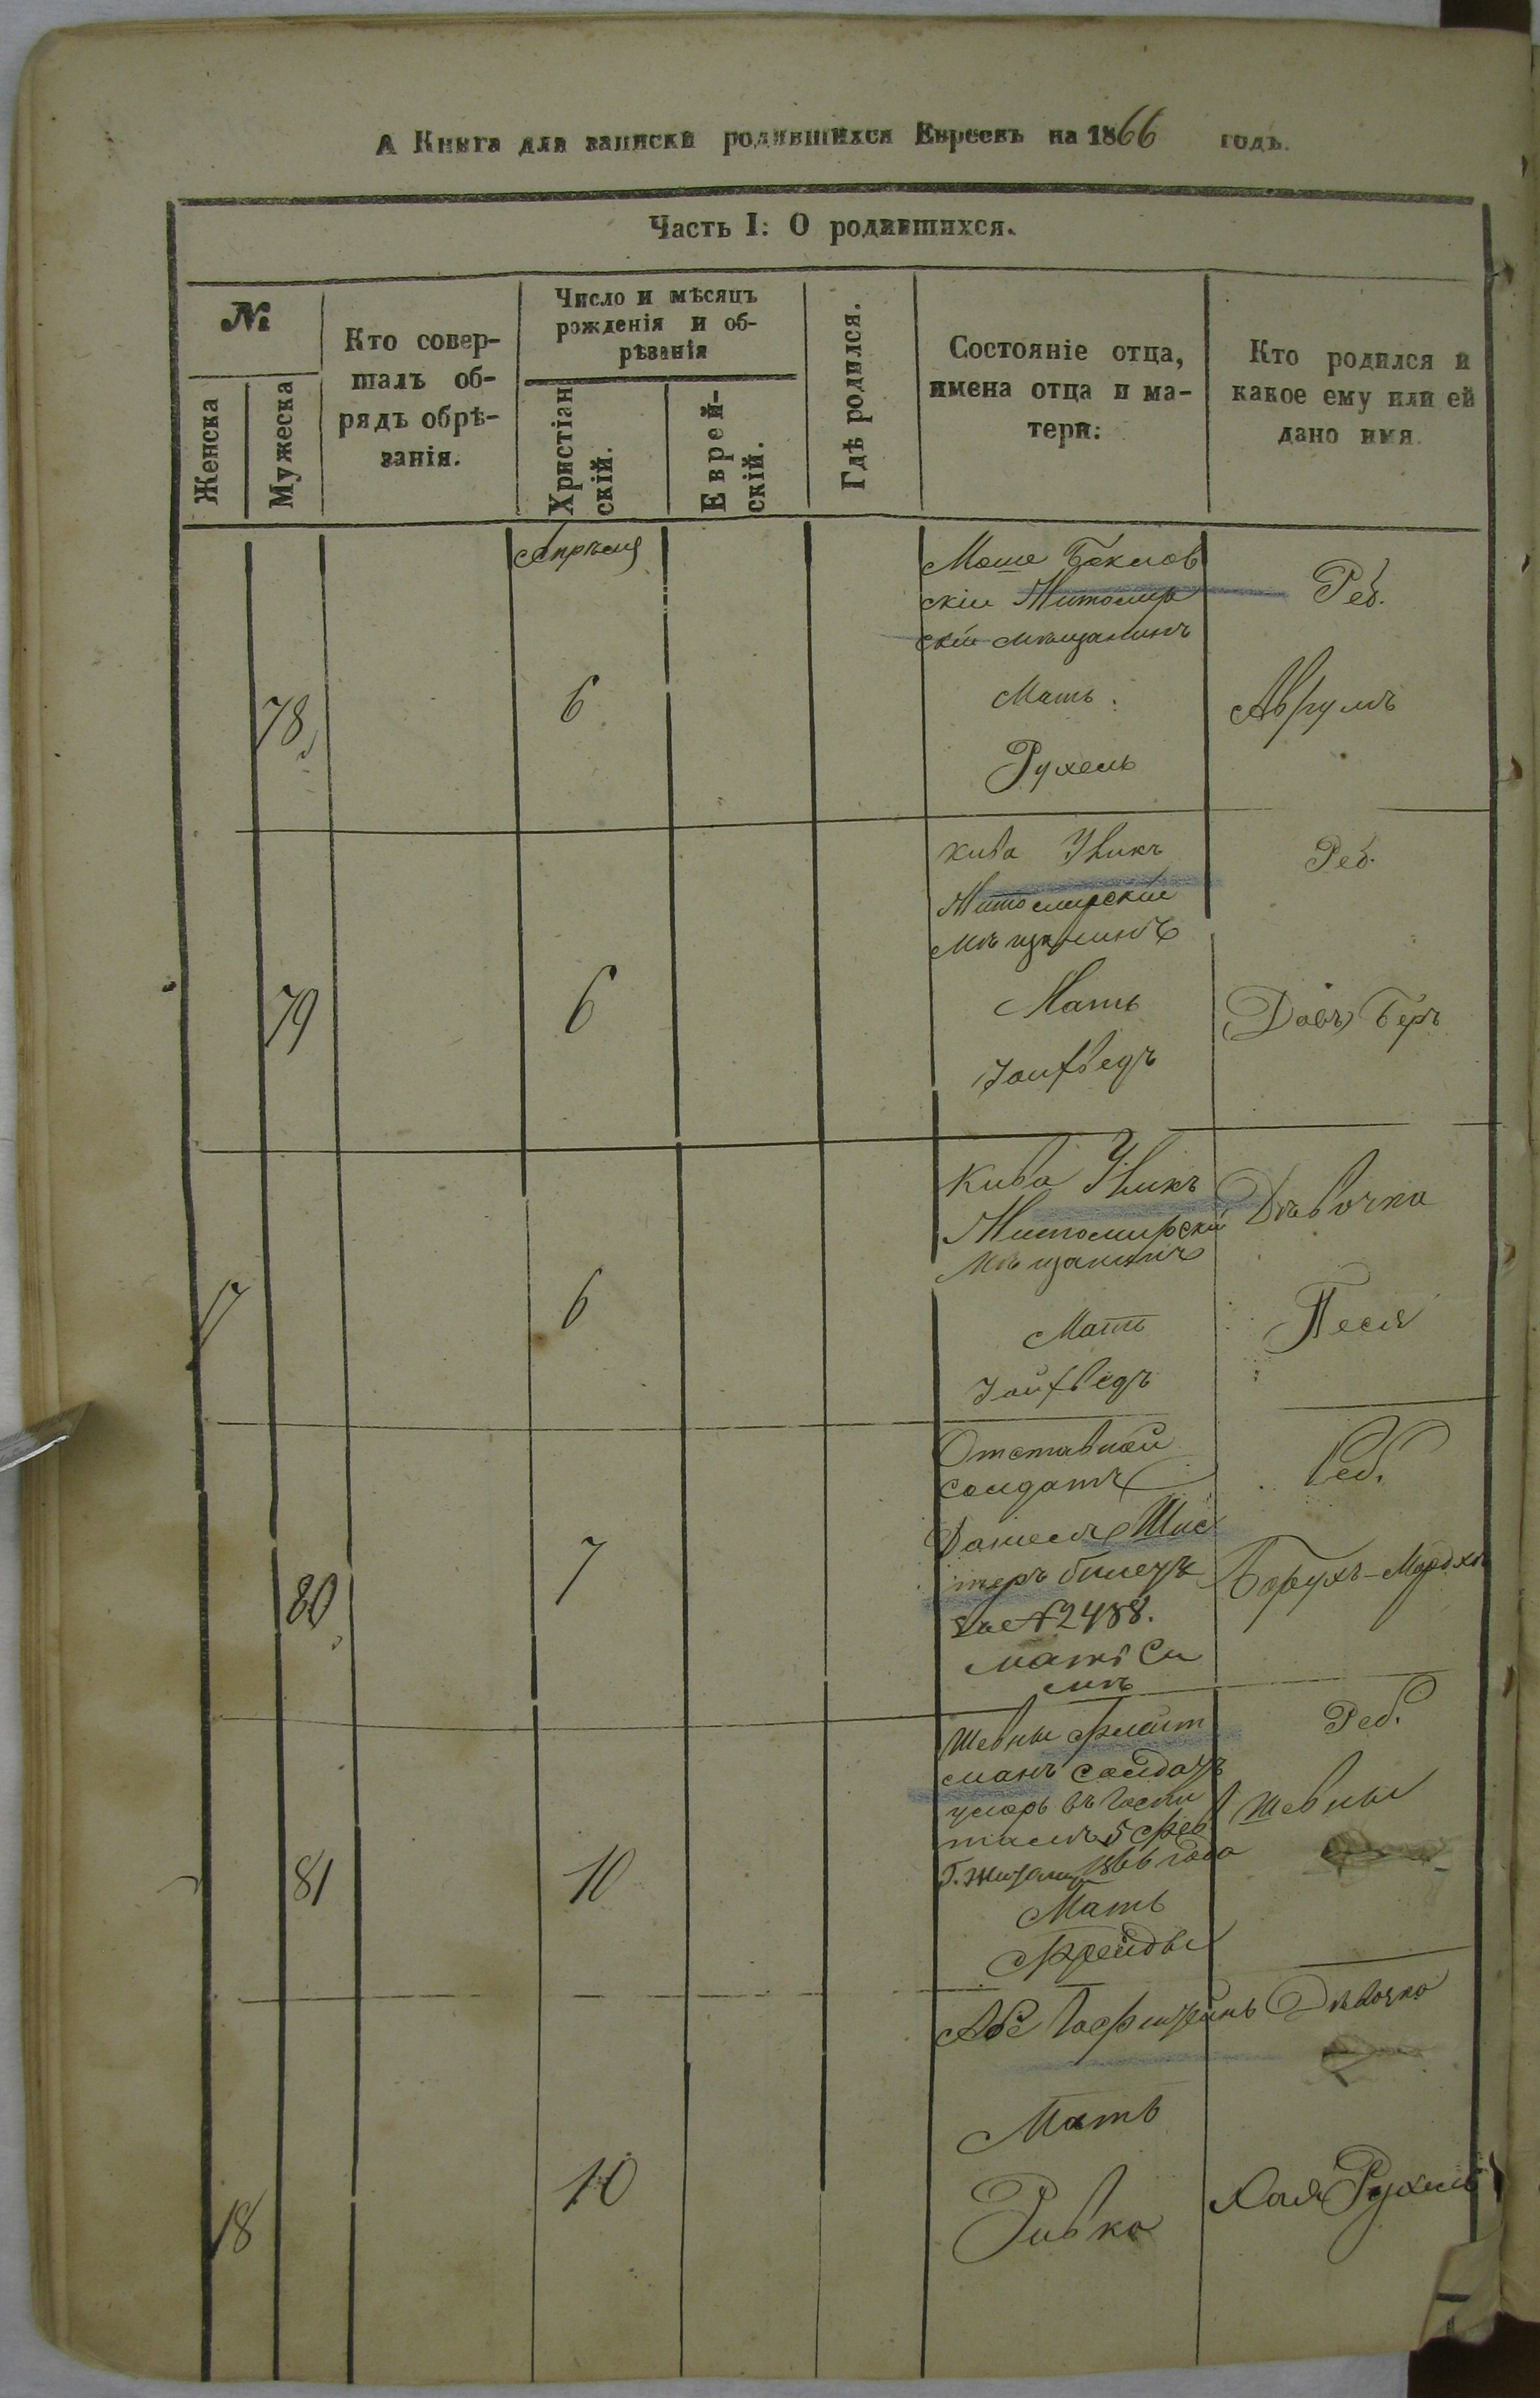 А Книга для записки родившихся Евреевъ на 1866 годъ.
Часть I: О родившихся.
№
Женска
Мужеска
Кто совер-
шалъ об-
рядъ обрѣ-
занія.
Число и мѣсяцъ
рожденія и об-
рѣзанія
Христіан
скій.
Еврей-
скій.
Гдѣ родился.
Состояніе отца,
имена отца и ма-
тери:
Кто родился и
какое ему или ей
дано имя.
Апрѣля
78
6
Моше
скій Житомир
скій мѣщанинъ
Мать
Рухель
Реб.
Аврумъ
79
6
Кива
Житомирскій
мѣщанинъ
Мать
Реб.
Довъ Беръ
17
6
Кива
Житомирскій
мѣщанинъ
Мать
Дѣвочка
Песя
80
7
Отставной
солдатъ
Даніелъ Шис
теръ билетъ
за №2488.
мать Си
мѣ
Реб.
Борухъ-Мордхе
81
10
Шевны Флейт
манъ солдатъ
умеръ въ госпи
талѣ 5 Фев
1866 года
Мать
Фрейды
Реб.
Шевны
18
10
Мать
Ривка
Дѣвочка
Хая Рухель